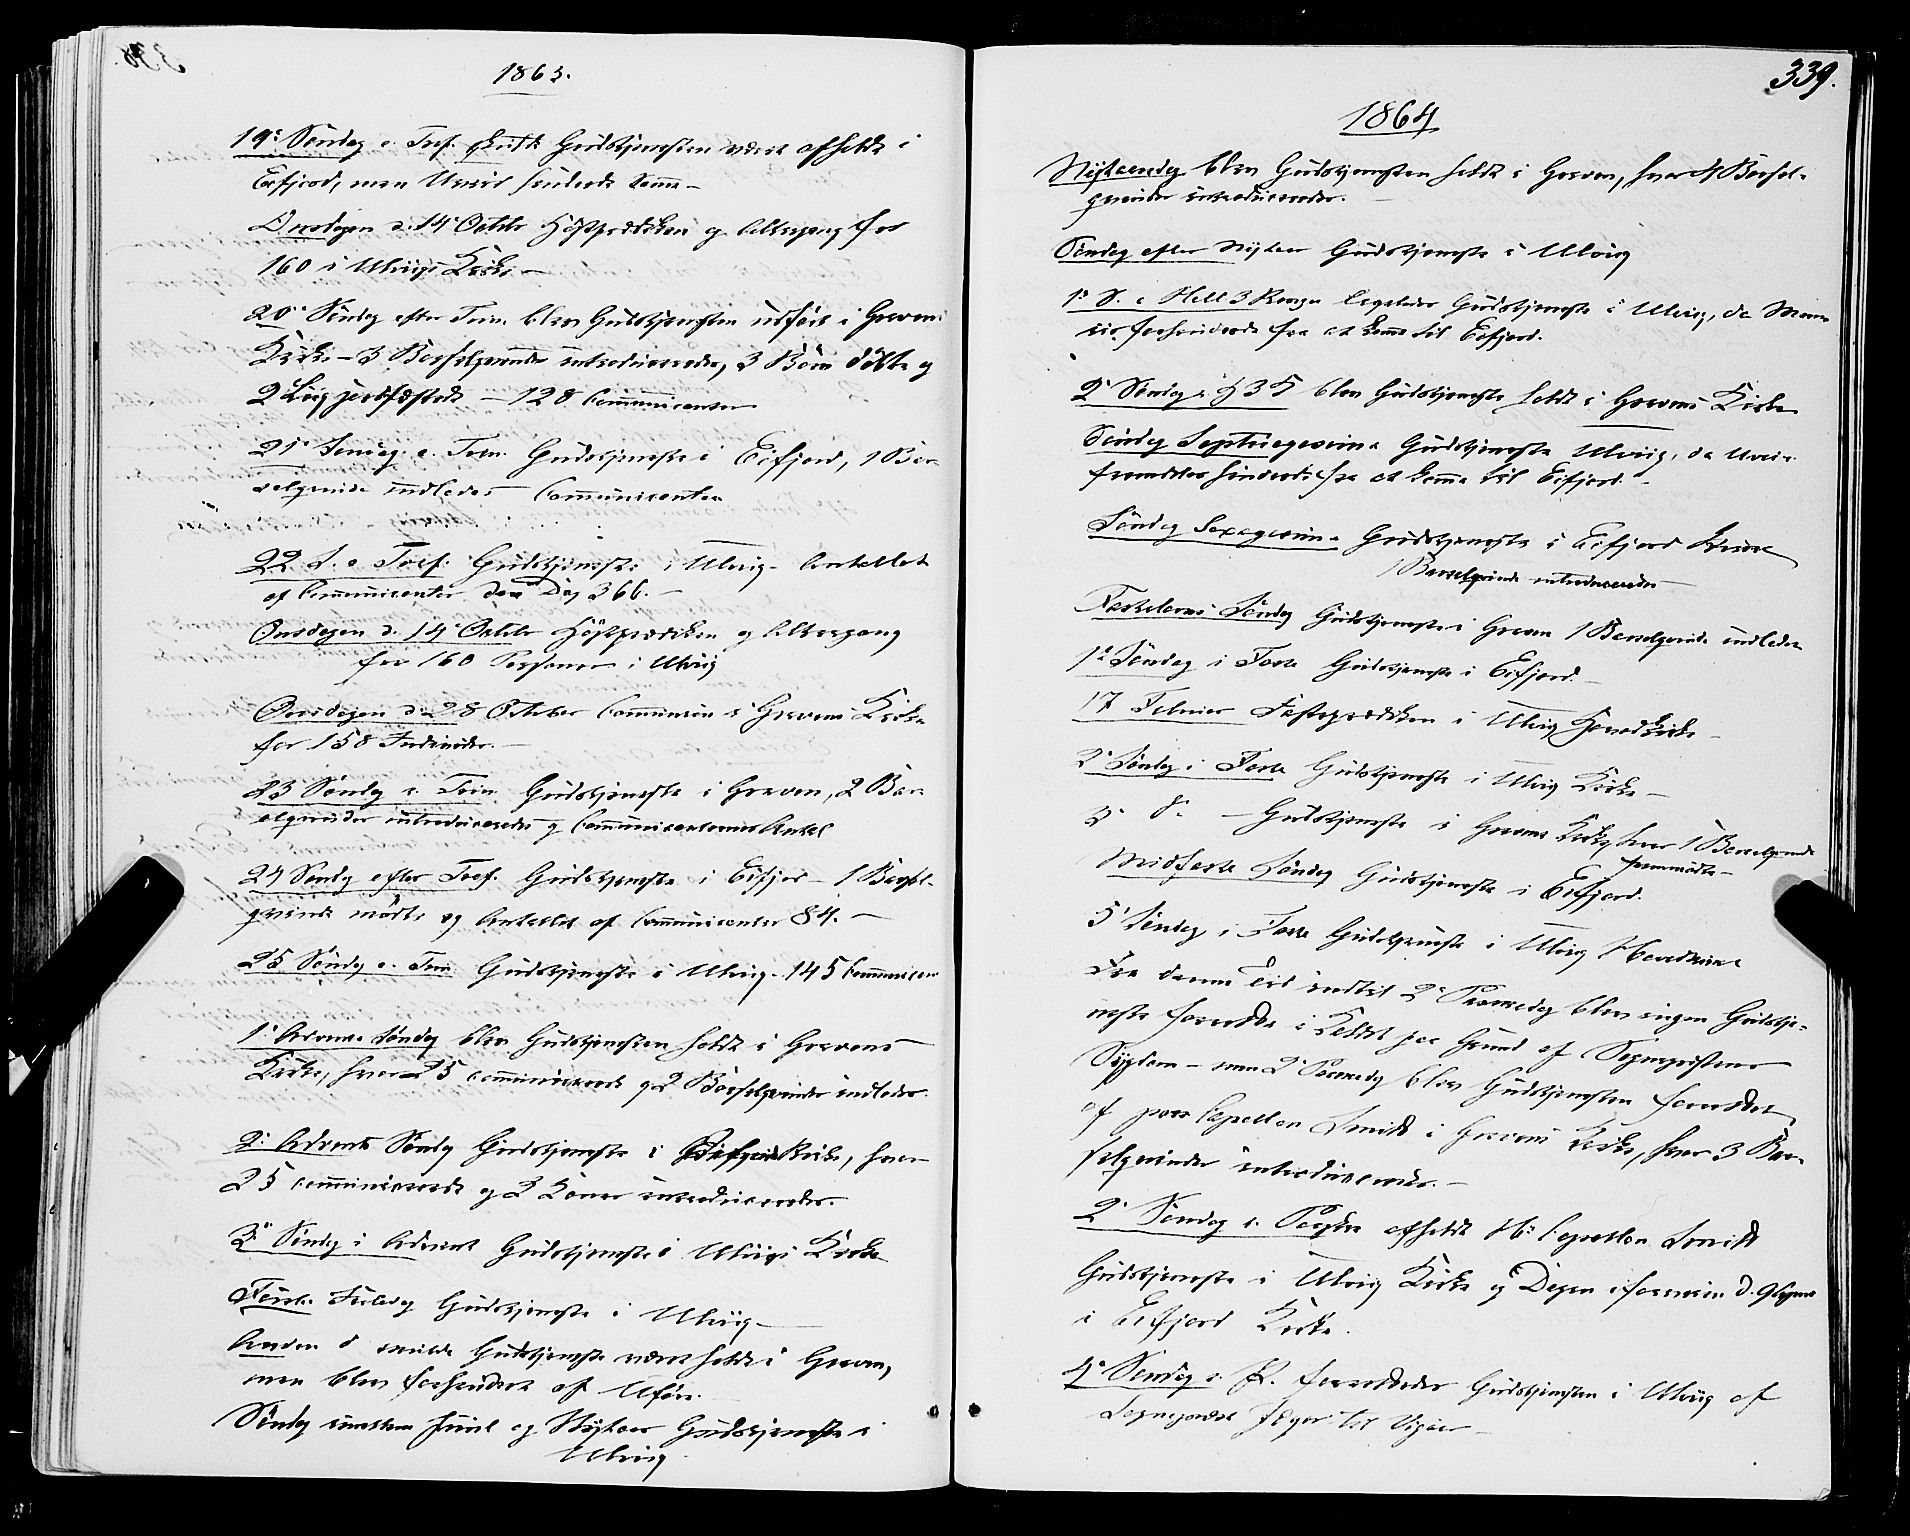 1863.
19de Søndag e. Tref. skulde Gudstjenesten været afholdt i
Eifjord, men Uveir hindrede Komme
Onsdagen d. 14de Octobr Høstprædiken og Altergang for
160 i Ulvigs Kirke
20de Søndag efter Trin. blev Gudstjenesten udført i Gravens
Kirke - 3 Barselqvinder introduceredes, 3 Børn døbte og
2 Liig jordfæstede - 128 Communicanter
21de Søndag e. Trin. Gudstjeneste i Eifjord, 1 Bar-
selqvinde indledes Communicanter
22 S. e Tref. Gudstjeneste i Ulvig - Antallet
af Communicanter den Dag 366.
Onsdagen d. 14de Octobr Høstprædiken og Altergang
for 160 Personer i Ulvig
Onsdagen d. 28 October Communion i Gravens Kirke
for 158 Individer.
23 Søndag e. Trin Gudstjeneste i Graven, 2 Bar-
selqvinder introduceredes og Communicanternes Antal
24 Søndag efter Tref. Gudstjeneste i Eifjor - 1 Barsel-
qvinde mødte og Antallet af Communicanter 84.
25 Søndag e. Trin Gudstjeneste i Ulvig - 145 Communican
1ste Advents Søndag blev Gudstjenesten holdt i Gravens
Kirke, hvor 25 communicerede og 2 Barselqvinder indledes
2den Advents Søndag Gudstjeneste i Kirke, hvor
25 communicerede og 2 Koner introduceredes.
3de Søndag i Advent Gudstjeneste i Ulvigs Kirke
Første Juledag Gudstjeneste i Ulvig
Anden d skulde Gudstjeneste været holdt i Graven,
men blev forhindret af Uføre.
Søndag imellem Juul og Nytaar Gudstjeneste i
Ulvig
339.
1864
Nytaarsdag blev Gudstjenesten holdt i Graven, hvor 4 Barsel-
qvinder introduceredes.
Søndag efter Nytaar Gudstjeneste i Ulvig
1ste S. e Hell 3 Konger Gudstjeneste i Ulvig, da
forhindrede fra at komme til Eifjord.
2den Søndag e H 3 K blev Gudstjeneste holdt i Gravens Kirke
Søndag Septuagesima Gudstjeneste Ulvig, da Uveir
fremdeles hindrede fra at komme til Eifjord.
Søndag Sexagesima Gudstjeneste i Eifjord Kirke
1 Barselqvinde introduceredes
Fastelavns Søndag Gudstjeneste i Graven 1 Barselqvinde indledes
1ste Søndag i Faste Gudstjeneste i Eifjord.
17 Februar Fasteprædiken i Ulvig Hovedkirke
2den Søndag i Faste Gudstjeneste i Ulvig Kirke
3de do - Gudstjeneste i Gravens Kirke, hvor 1 Barselqvinde
fremmødte
Midfaste Søndag Gudstjeneste i Eifjord.
5te Søndag i Faste Gudstjeneste i Ulvig Hovedkirke
Fra denne Tid indtil 2den Paaskedag blev ingen Gudstje-
neste forrettet i Kaldet paa Grund af Sognepræstens
Sygdom - men 2den Paaskedag blev Gudstjenesten forrettet
af pers Capellan Smith i Gravens Kirke, hvor 3 Bar-
selqvinder introduceredes.
2den Søndag e. Paaske afholdt Hr Capellan Smith
Gudstjeneste i Ulvig Kirke og Dagen iforveien
i Eifjord Kirke.
4de Søndag e. P. forrettedes Gudstjenesten i Ulvig af
Sognepræst til Vigøer